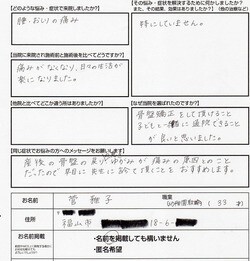 【どのような悩み・症状で来院しましたか？】
腰、おしりの痛み
【その悩み・症状を解決するために何かしましたか？
また、その結果、効果はありましたか？（他の治療など）】
特にしていません。
【当院に来院され施術前と施術後を比べてどうですか？】
痛みがなくなり、日々の生活が
楽になりました。
【他院と比べてどこか違う所はありましたか？】
【なぜ当院を選ばれたのですか？】
骨盤矯正をして頂けること
子どもと一緒に通院できること
が良いと思いました。
【同じ症状でお悩みの方へのメッセージをお願いします】
産後の骨盤の
ゆがみが痛みの原因とのこと
だったので
先生に診て頂くことをおすすめします。
お名前
菅 雅子
職業
（33才）
住所
福山市
18-6-
お名前掲載
・名前を掲載しても構いません
・匿名希望